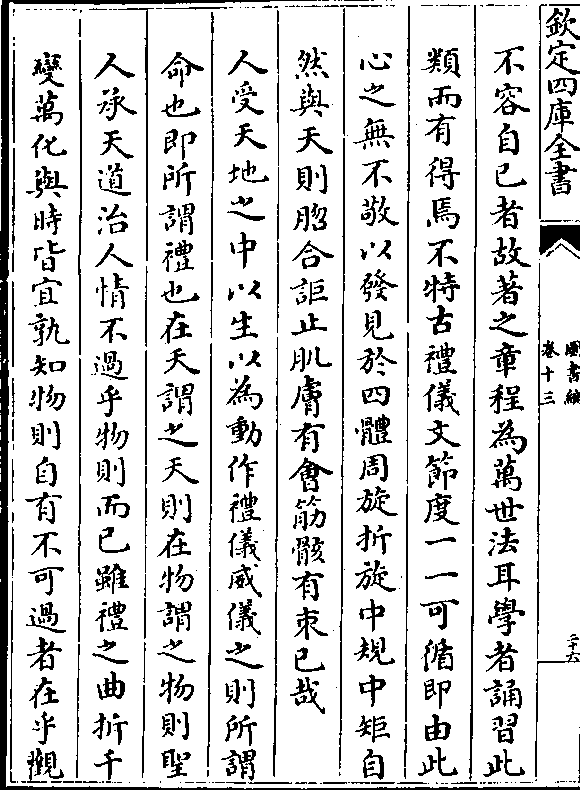 欽定四庫全書
圖書編
卷十三
二十六
不容自已者故著之章程為萬世法耳學者誦習此
類而有得焉不特古禮儀文節度一一可循即由此
心之無不敬以發見於四體周旋折旋中規中矩自
然與天則脗合詎止肌膚有會筋骸有束已哉
人受天地之中以生以為動作禮儀威儀之則所謂
命也即所謂禮也在天謂之天則在物謂之物則聖
人承天道治人情不過乎物則而已雖禮之曲折千
變萬化與時皆宜孰知物則自有不可過者在乎觀